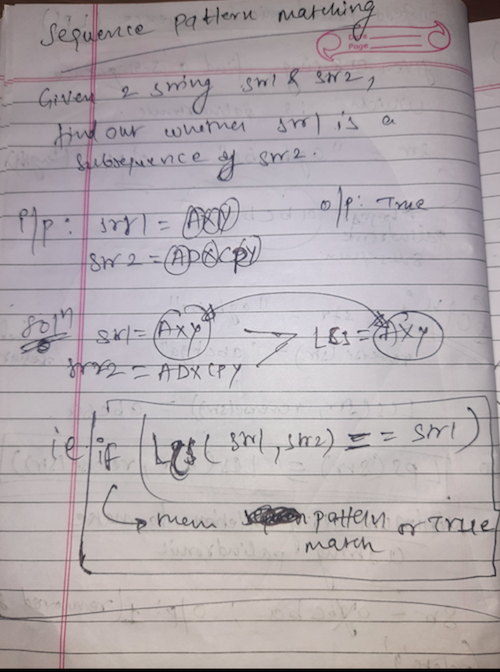 Sequence pattern matching
Date
Page
Given 2 string str1 & str2,
find out whether str1 is a
subsequence of str2.
I/p: str1 = AXY
o/p: True
str2 = ADXCPY
Solⁿ
str1 = AXY
LCS = AXY
str2 = ADXCPY
ie if (LCS(str1, str2) == str1)
then pattern or True
match